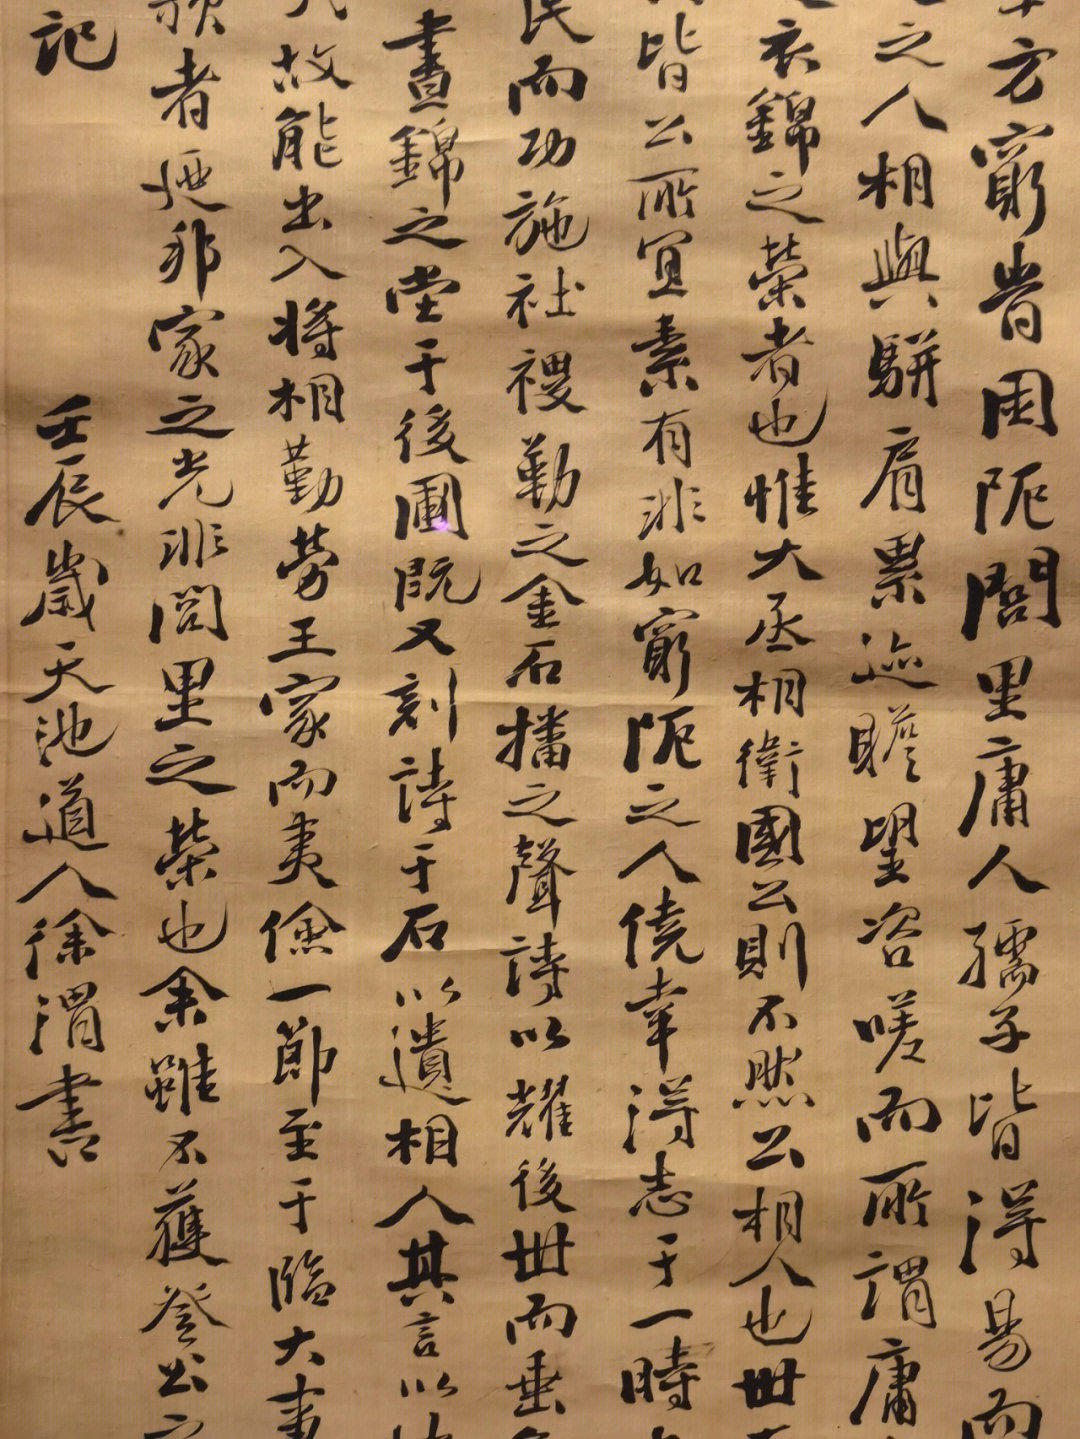 方窮時困阨閭里庸人孺子皆得易而
之人相與駢肩累迹瞻望咨嗟而所謂庸
衣錦之榮者也惟大丞相衛國公則不然公相人也世
皆公所宜素有非如窮阨之人僥幸得志于一時
民而功施社稷勒之金石播之聲詩以耀後世而垂
晝錦之堂于後圃既又刻詩于石以遺相人其言以
故能出入將相勤勞王家而夷儉一節至于臨大事
者邦家之光非閭里之榮也余雖不獲登公之
記
壬辰歲天池道人徐渭書